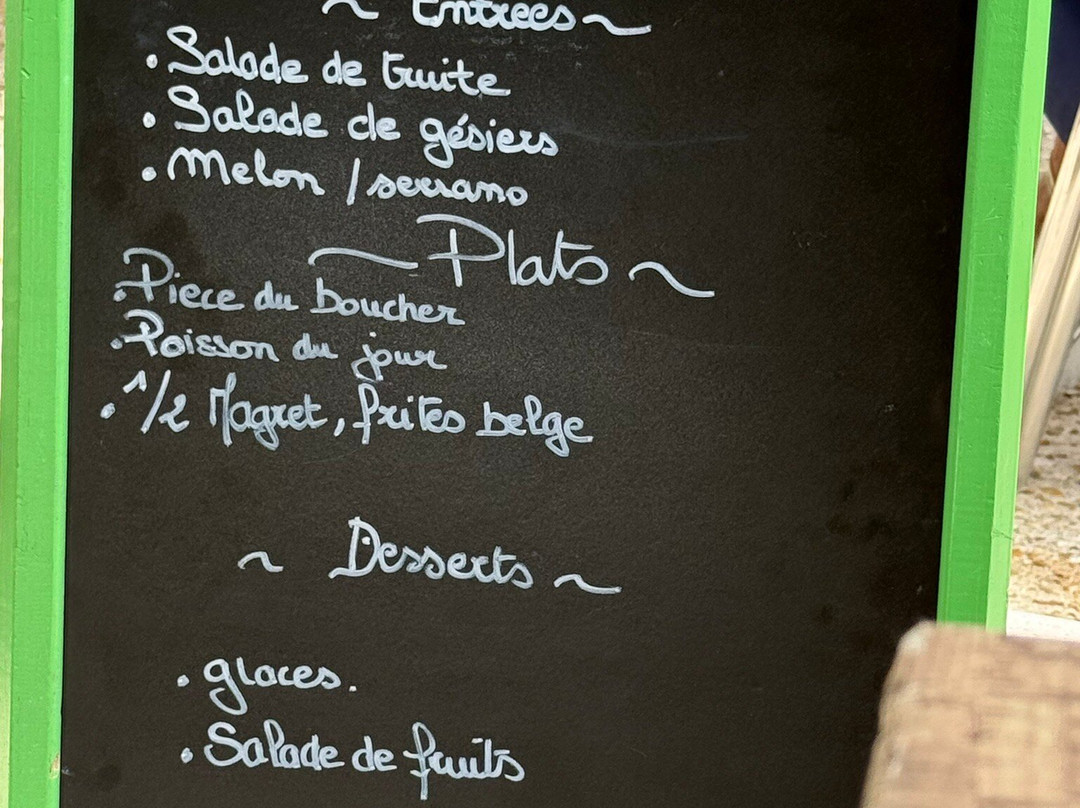 ~ Entrees ~
• Salade de truite
• Salade de gésiers
• Melon / serrano
~ Plats ~
• Piece du boucher
• Poisson du jour
• 1/2 Magret, frites belge
~ Desserts ~
• glaces.
• Salade de fruits